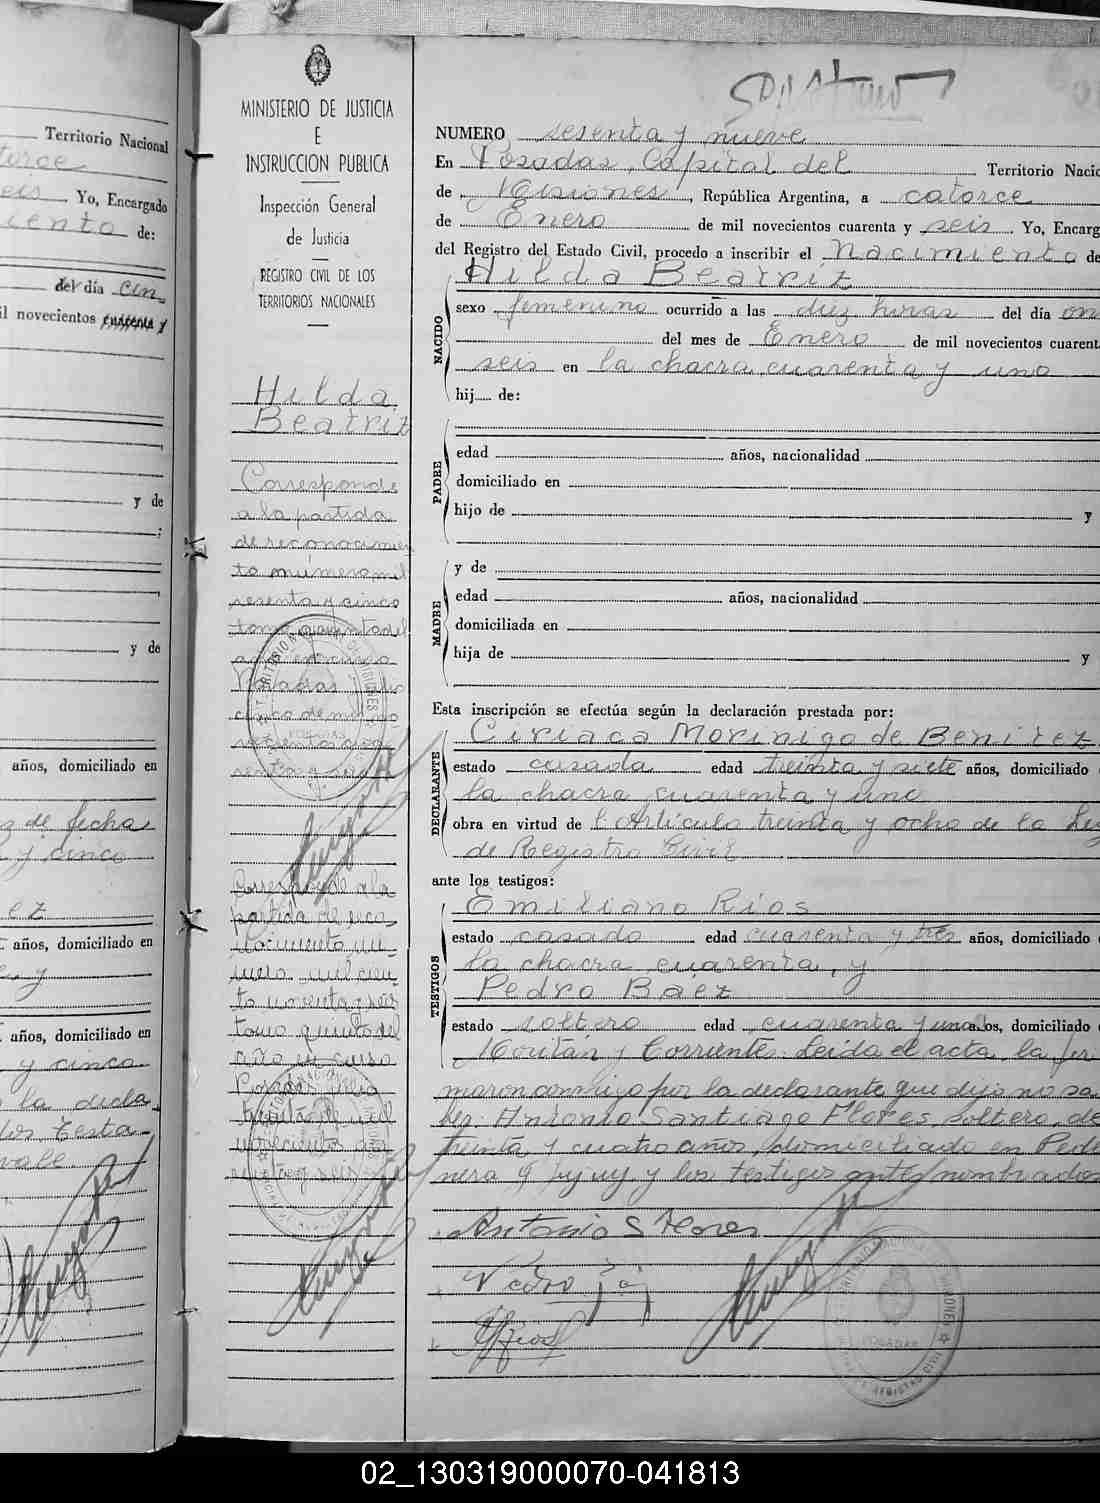 Territorio Nacional
Yo, Encargado
de:
del día cin
il novecientos cuarenta y
y de
y de
años, domiciliado en
de fecha
y cinco
ez
años, domiciliado en
y
años, domiciliado en
y cinco
la decla
los testa
vale
MINISTERIO DE JUSTICIA
E
INSTRUCCION PUBLICA
Inspección General
de Justicia
REGISTRO CIVIL DE LOS
TERRITORIOS NACIONALES
Hilda
Beatriz
Corresponde
a la partida
de reconocimien
to número mil
sesenta y cinco
tomo quinto del
año en curso
Posadas
Corresponde a la
partida de reco
nocimiento nú-
mero mil cien
to noventa y seis
tomo quinto del
año en curso
Posadas Julio
treinta de mil
novecientos cua
renta y seis
NUMERO sesenta y nueve
En Posadas, Capital del Territorio Nacio
de Misiones, República Argentina, a catorce
de Enero de mil novecientos cuarenta y seis Yo, Encarg
del Registro del Estado Civil, procedo a inscribir el Nacimiento de
Hilda Beatriz
NACIDO
sexo femenino ocurrido a las diez horas del día on
del mes de Enero de mil novecientos cuarent
seis en la chacra cuarenta y uno
hij de:
PADRE
edad años, nacionalidad
domiciliado en
hijo de y
MADRE
y de
edad años, nacionalidad
domiciliada en
hija de y
Esta inscripción se efectúa según la declaración prestada por:
DECLARANTE
Ciriaca Morinigo de Benitez
estado casada edad treinta y siete años, domiciliado
la chacra cuarenta y uno
obra en virtud de l'Artículo treinta y ocho de la Ley
de Registro Civil
ante los testigos:
TESTIGOS
Emiliano Rios
estado casado edad cuarenta y tres años, domiciliado
la chacra cuarenta, y
Pedro Baez
estado soltero edad cuarenta y un años, domiciliado
Roritán y Corriente. Leída el acta, la fir
maron conmigo por la declarante que dijo no sa-
ber: Antonio Santiago Flores, soltero, de
treinta y cuatro años, domiciliado en Pede
nera y Jujuy y los testigos antes nombrados
Antonio S Flores
POSADAS
02_130319000070-041813